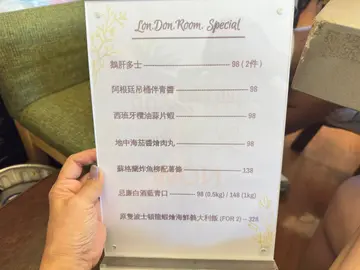 Lon Don Room Special
鵝肝多士 98 (2件)
阿根廷吊桶伴青醬 98
西班牙欖油蒜片蝦 98
地中海茄醬燴肉丸 98
蘇格蘭炸魚柳配薯條 138
忌廉白酒藍青口 98 (0.5kg) / 148 (1kg)
原隻波士頓龍蝦燴海鮮義大利飯 (FOR 2) 328